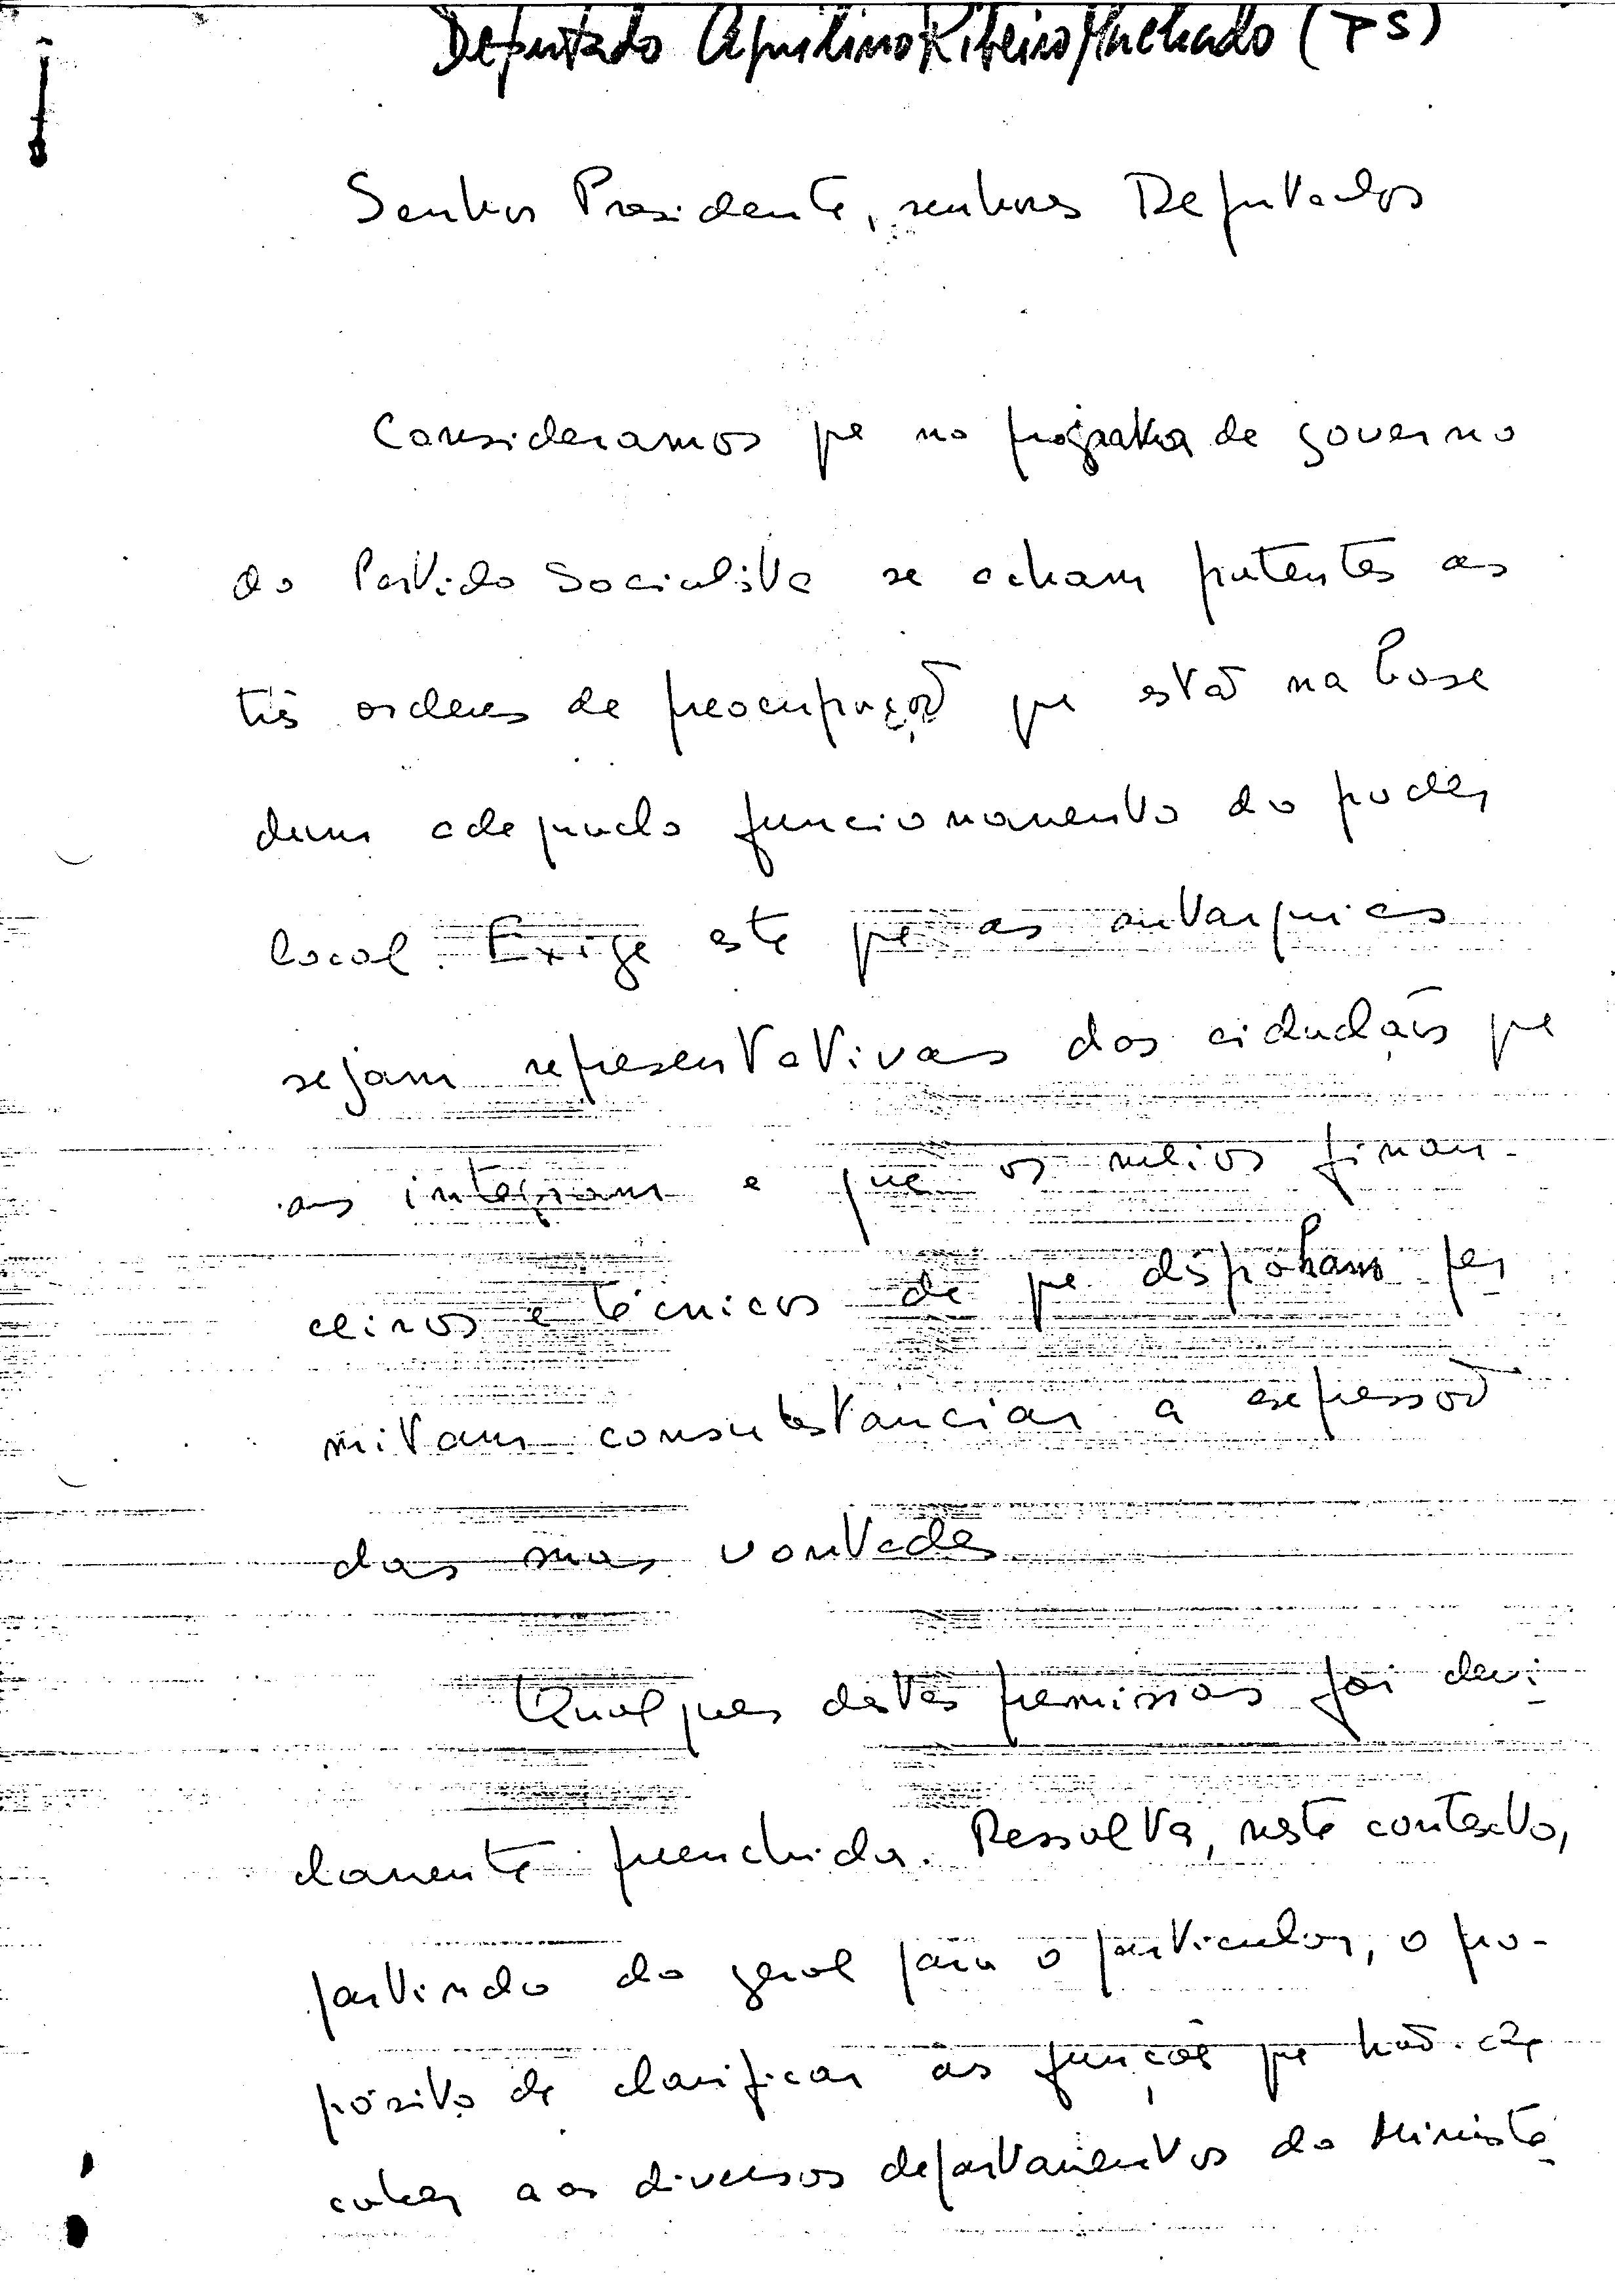 Deputado Aquilino Ribeiro Machado (PS)
Senhor Presidente, senhores Deputados
Consideramos que no programa de governo
do Partido Socialista se acham patentes as
três ordens de preocupação que estão na base
dum adequado funcionamento do poder
local. Exige este que as autarquias
sejam representativas dos cidadãos que
as integram e que os meios finan-
ceiros e técnicos de que disponham per
mitam consubstanciar a expressão
das suas vontades
Qualquer destas premissas foi devi
damente preenchida. Ressalta, neste contexto,
partindo do geral para o particular, o pro-
pósito de clarificar as funções que hão-de
caber aos diversos departamentos do Ministé